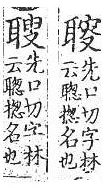 先口切字林
云聦揔名也
先口切字林
云聦揔名也